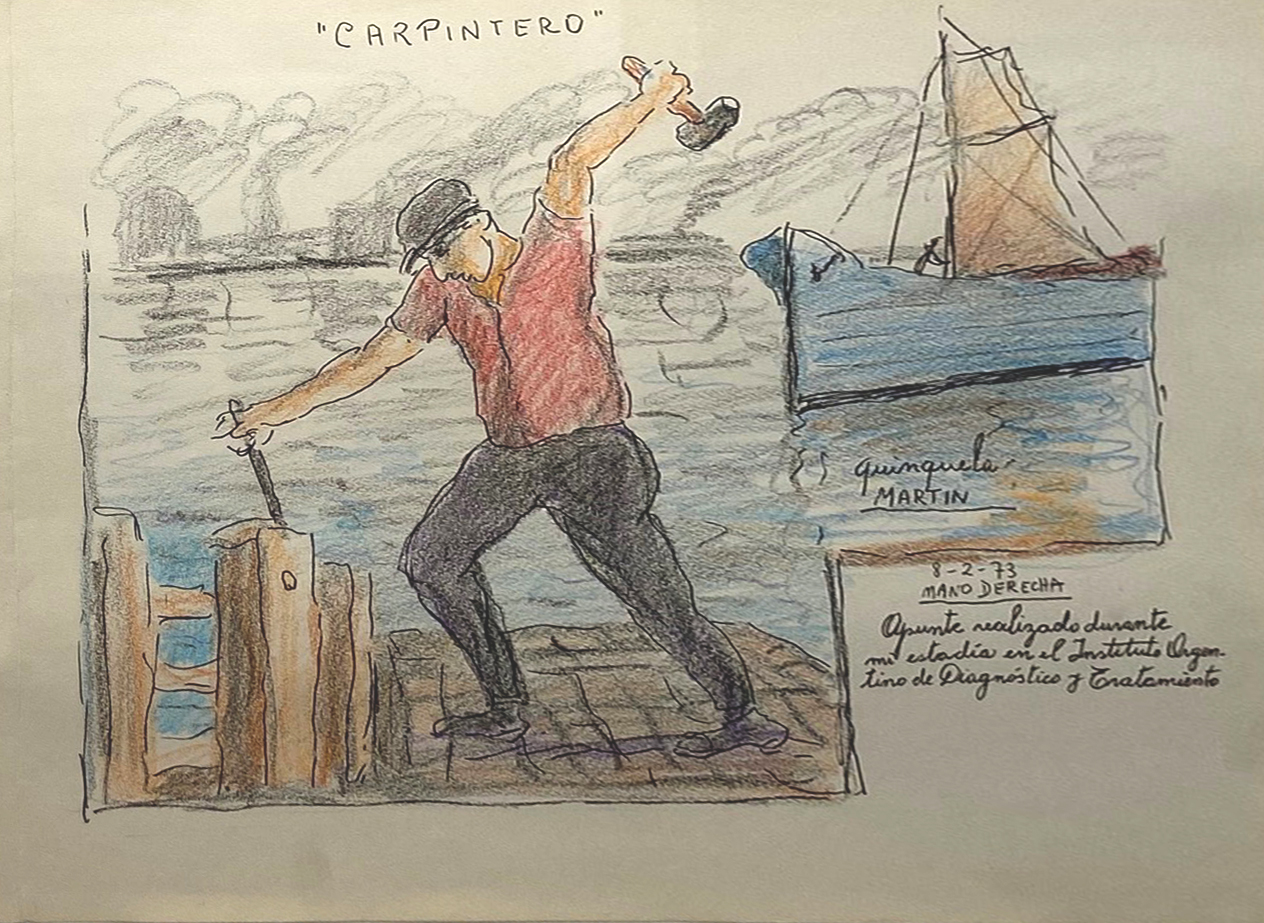 "CARPINTERO"
Quinquela
MARTIN
8-2-73
MANO DERECHA
Apunte realizado durante
mi estadía en el Instituto Argen-
tino de Diagnóstico y Tratamiento